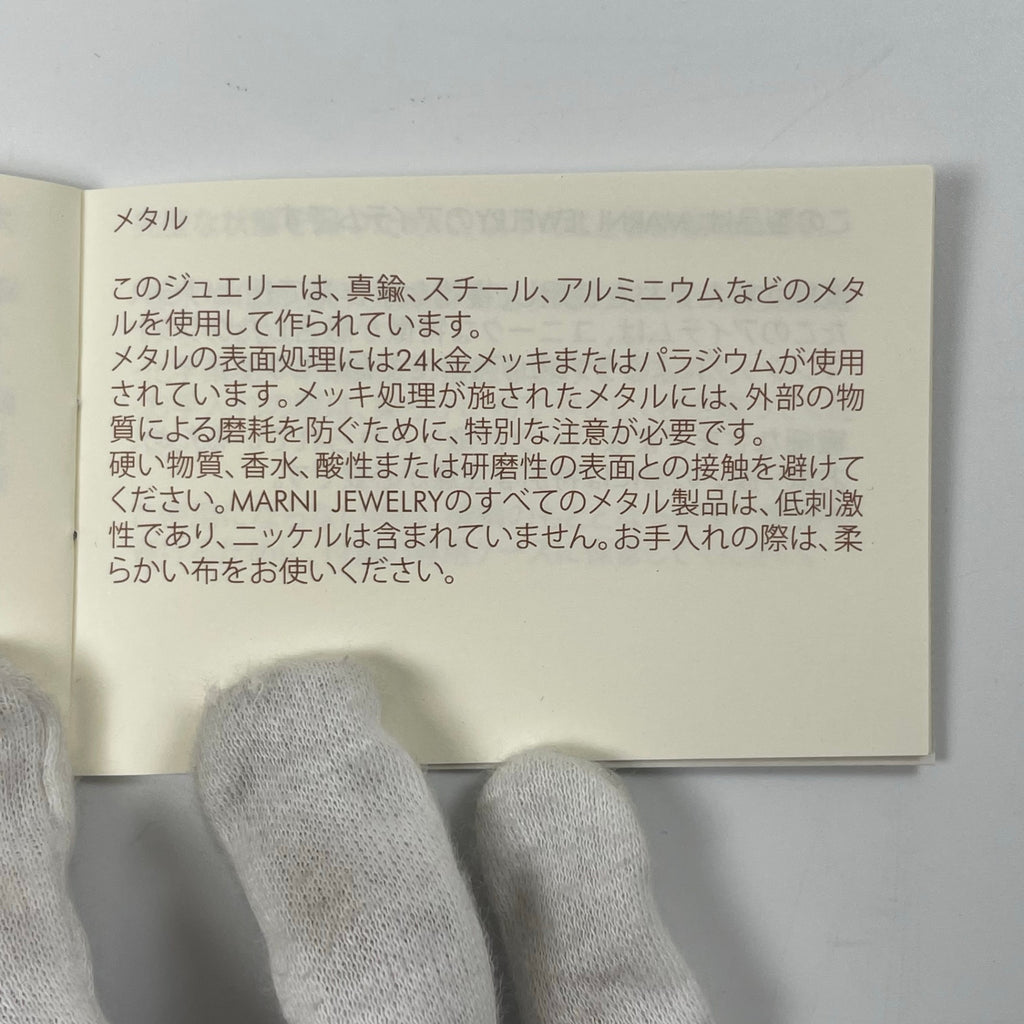 メタル
このジュエリーは、真鍮、スチール、アルミニウムなどのメタ
ルを使用して作られています。
メタルの表面処理には24k金メッキまたはパラジウムが使用
されています。メッキ処理が施されたメタルには、外部の物
質による磨耗を防ぐために、特別な注意が必要です。
硬い物質、香水、酸性または研磨性の表面との接触を避けて
ください。MARNI JEWELRYのすべてのメタル製品は、低刺激
性であり、ニッケルは含まれていません。お手入れの際は、柔
らかい布をお使いください。